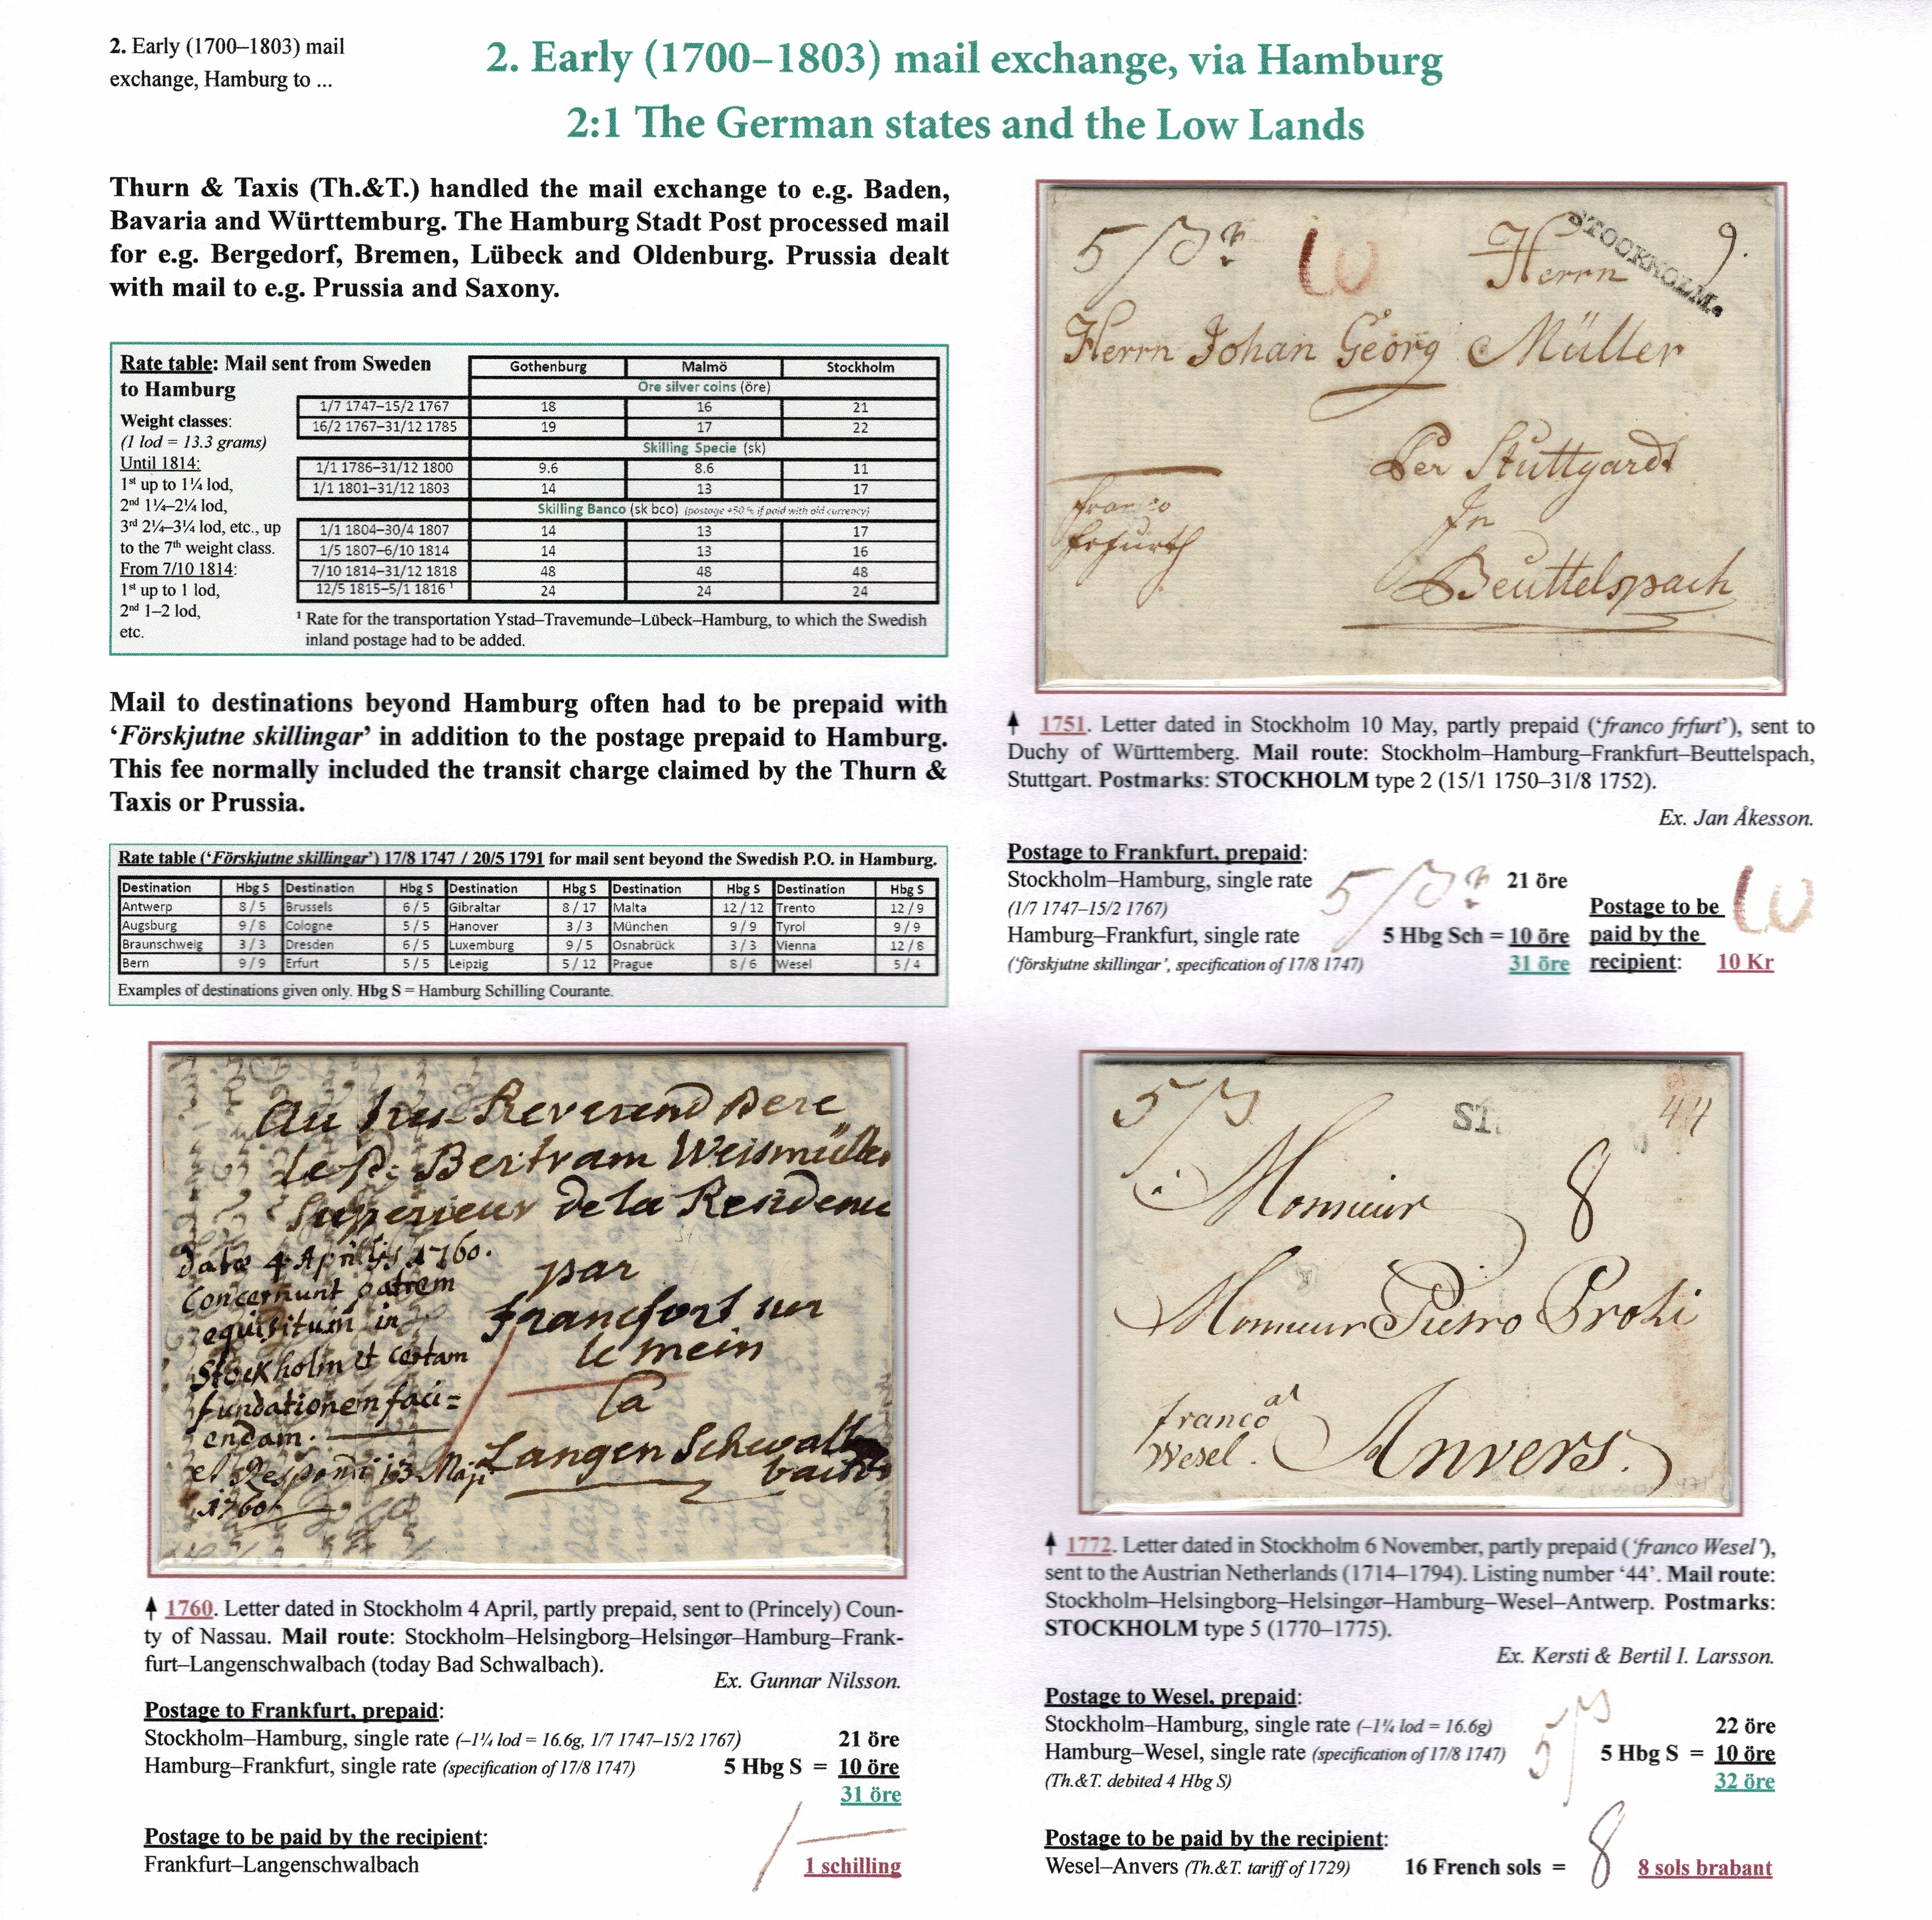 2. Early (1700–1803) mail
exchange, Hamburg to ...
2. Early (1700–1803) mail exchange, via Hamburg
2:1 The German states and the Low Lands
Thurn & Taxis (Th.&T.) handled the mail exchange to e.g. Baden,
Bavaria and Württemburg. The Hamburg Stadt Post processed mail
for e.g. Bergedorf, Bremen, Lübeck and Oldenburg. Prussia dealt
with mail to e.g. Prussia and Saxony.
Rate table: Mail sent from Sweden
to Hamburg
Weight classes:
(1 lod = 13.3 grams)
Until 1814:
1st up to 1¼ lod,
2nd 1¼–2¼ lod,
3rd 2¼–3¼ lod, etc., up
to the 7th weight class.
From 7/10 1814:
1st up to 1 lod,
2nd 1–2 lod,
etc.
Gothenburg Malmö Stockholm
Öre silver coins (öre)
1/7 1747–15/2 1767 18 16 21
16/2 1767–31/12 1785 19 17 22
Skilling Specie (sk)
1/1 1786–31/12 1800 9.6 8.6 11
1/1 1801–31/12 1803 14 13 17
Skilling Banco (sk bco) (postage +50 % if paid with old currency)
1/1 1804–30/4 1807 14 13 17
1/5 1807–6/10 1814 14 13 16
7/10 1814–31/12 1818 48 48 48
12/5 1815–5/1 1816 1 24 24 24
1 Rate for the transportation Ystad–Travemunde–Lübeck–Hamburg, to which the Swedish
inland postage had to be added.
Mail to destinations beyond Hamburg often had to be prepaid with
‘Förskjutne skillingar’ in addition to the postage prepaid to Hamburg.
This fee normally included the transit charge claimed by the Thurn &
Taxis or Prussia.
Rate table (‘Förskjutne skillingar’) 17/8 1747 / 20/5 1791 for mail sent beyond the Swedish P.O. in Hamburg.
Destination Hbg S Destination Hbg S Destination Hbg S Destination Hbg S Destination Hbg S
Antwerp 8 / 5 Brussels 6 / 5 Gibraltar 8 / 17 Malta 12 / 12 Trento 12 / 9
Augsburg 9 / 8 Cologne 5 / 5 Hanover 3 / 3 München 9 / 9 Tyrol 9 / 9
Braunschweig 3 / 3 Dresden 6 / 5 Luxemburg 9 / 5 Osnabrück 3 / 3 Vienna 12 / 8
Bern 9 / 9 Erfurt 5 / 5 Leipzig 5 / 12 Prague 8 / 6 Wesel 5 / 4
Examples of destinations given only. Hbg S = Hamburg Schilling Courante.
5 10 Herrn 9.
STOCKHOLM.
Herrn Johan Georg Müller
Per Stuttgardt
In
Beuttelspach
franco
frfurth
1751. Letter dated in Stockholm 10 May, partly prepaid (‘franco frfurt’), sent to
Duchy of Württemberg. Mail route: Stockholm–Hamburg–Frankfurt–Beuttelspach,
Stuttgart. Postmarks: STOCKHOLM type 2 (15/1 1750–31/8 1752).
Ex. Jan Åkesson.
Postage to Frankfurt, prepaid:
Stockholm–Hamburg, single rate 21 öre
(1/7 1747–15/2 1767)
Hamburg–Frankfurt, single rate 5 Hbg Sch = 10 öre
(‘förskjutne skillingar’, specification of 17/8 1747) 31 öre
Postage to be
paid by the
recipient: 10 Kr
Au tres Reverend Pere
le P: Bertram Weismüller
Superieur de la Residence
par
francfort sur
le mein
a
Langen Schwall
bach
dato 4 Aprilis 1760.
Concernunt patrem
requisitum in
Stockholm et certam
fundationem faci=
endam.
et Respondi 13 Maji
1760
1760. Letter dated in Stockholm 4 April, partly prepaid, sent to (Princely) Coun-
ty of Nassau. Mail route: Stockholm–Helsingborg–Helsingør–Hamburg–Frank-
furt–Langenschwalbach (today Bad Schwalbach).
Ex. Gunnar Nilsson.
Postage to Frankfurt, prepaid:
Stockholm–Hamburg, single rate (–1¼ lod = 16.6g, 1/7 1747–15/2 1767) 21 öre
Hamburg–Frankfurt, single rate (specification of 17/8 1747) 5 Hbg S = 10 öre
31 öre
Postage to be paid by the recipient:
Frankfurt–Langenschwalbach 1 schilling
5 ST 44
à Monsieur 8
Monsieur Pietro Proli
franco
Wesel.
Anvers.
1772. Letter dated in Stockholm 6 November, partly prepaid (‘franco Wesel’),
sent to the Austrian Netherlands (1714–1794). Listing number ‘44’. Mail route:
Stockholm–Helsingborg–Helsingør–Hamburg–Wesel–Antwerp. Postmarks:
STOCKHOLM type 5 (1770–1775).
Ex. Kersti & Bertil I. Larsson.
Postage to Wesel, prepaid:
Stockholm–Hamburg, single rate (–1¼ lod = 16.6g) 22 öre
Hamburg–Wesel, single rate (specification of 17/8 1747) 5 Hbg S = 10 öre
(Th.&T. debited 4 Hbg S) 32 öre
Postage to be paid by the recipient:
Wesel–Anvers (Th.&T. tariff of 1729) 16 French sols = 8 8 sols brabant